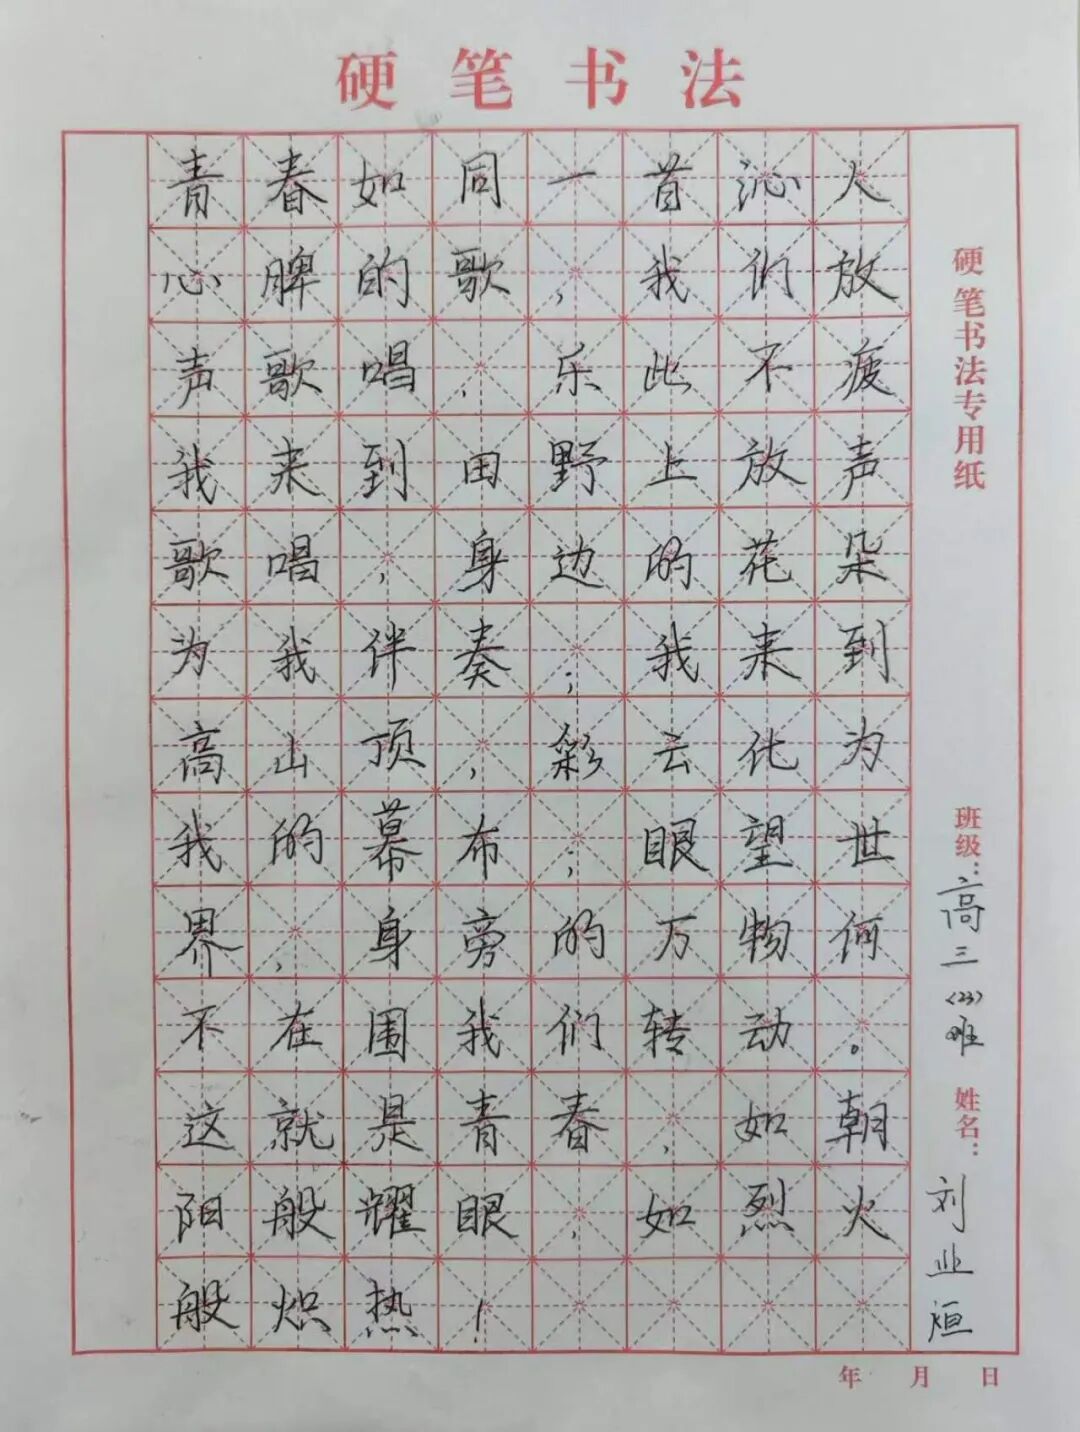 硬笔书法
青春如同一首沁人
心脾的歌，我们放
声歌唱，乐此不疲
我来到田野上放声
歌唱，身边的花朵
为我伴奏；我来到
高山顶，彩云化为
我的幕布；眼望世
界，身旁的万物何
不在围我们转动。
这就是青春，如朝
阳般耀眼，如烈火
般炽热！
硬笔书法专用纸
班级：高三(23)班
姓名：刘业恒
年 月 日